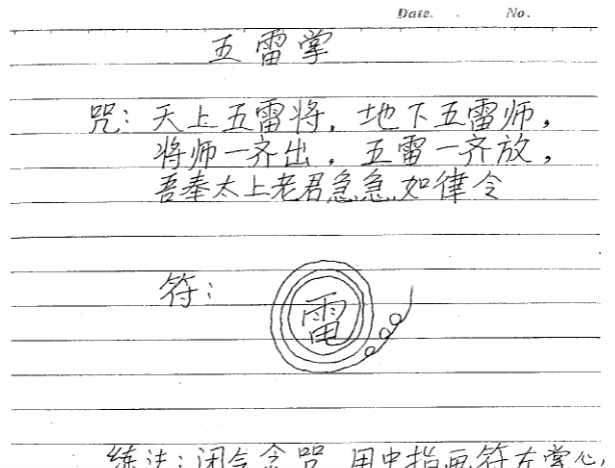 Date. . No.
五雷掌
咒：天上五雷将，地下五雷师，
将师一齐出，五雷一齐放，
吾奉太上老君急急如律令
符：
雷
练法：闭气念咒 用中指画符在掌心，